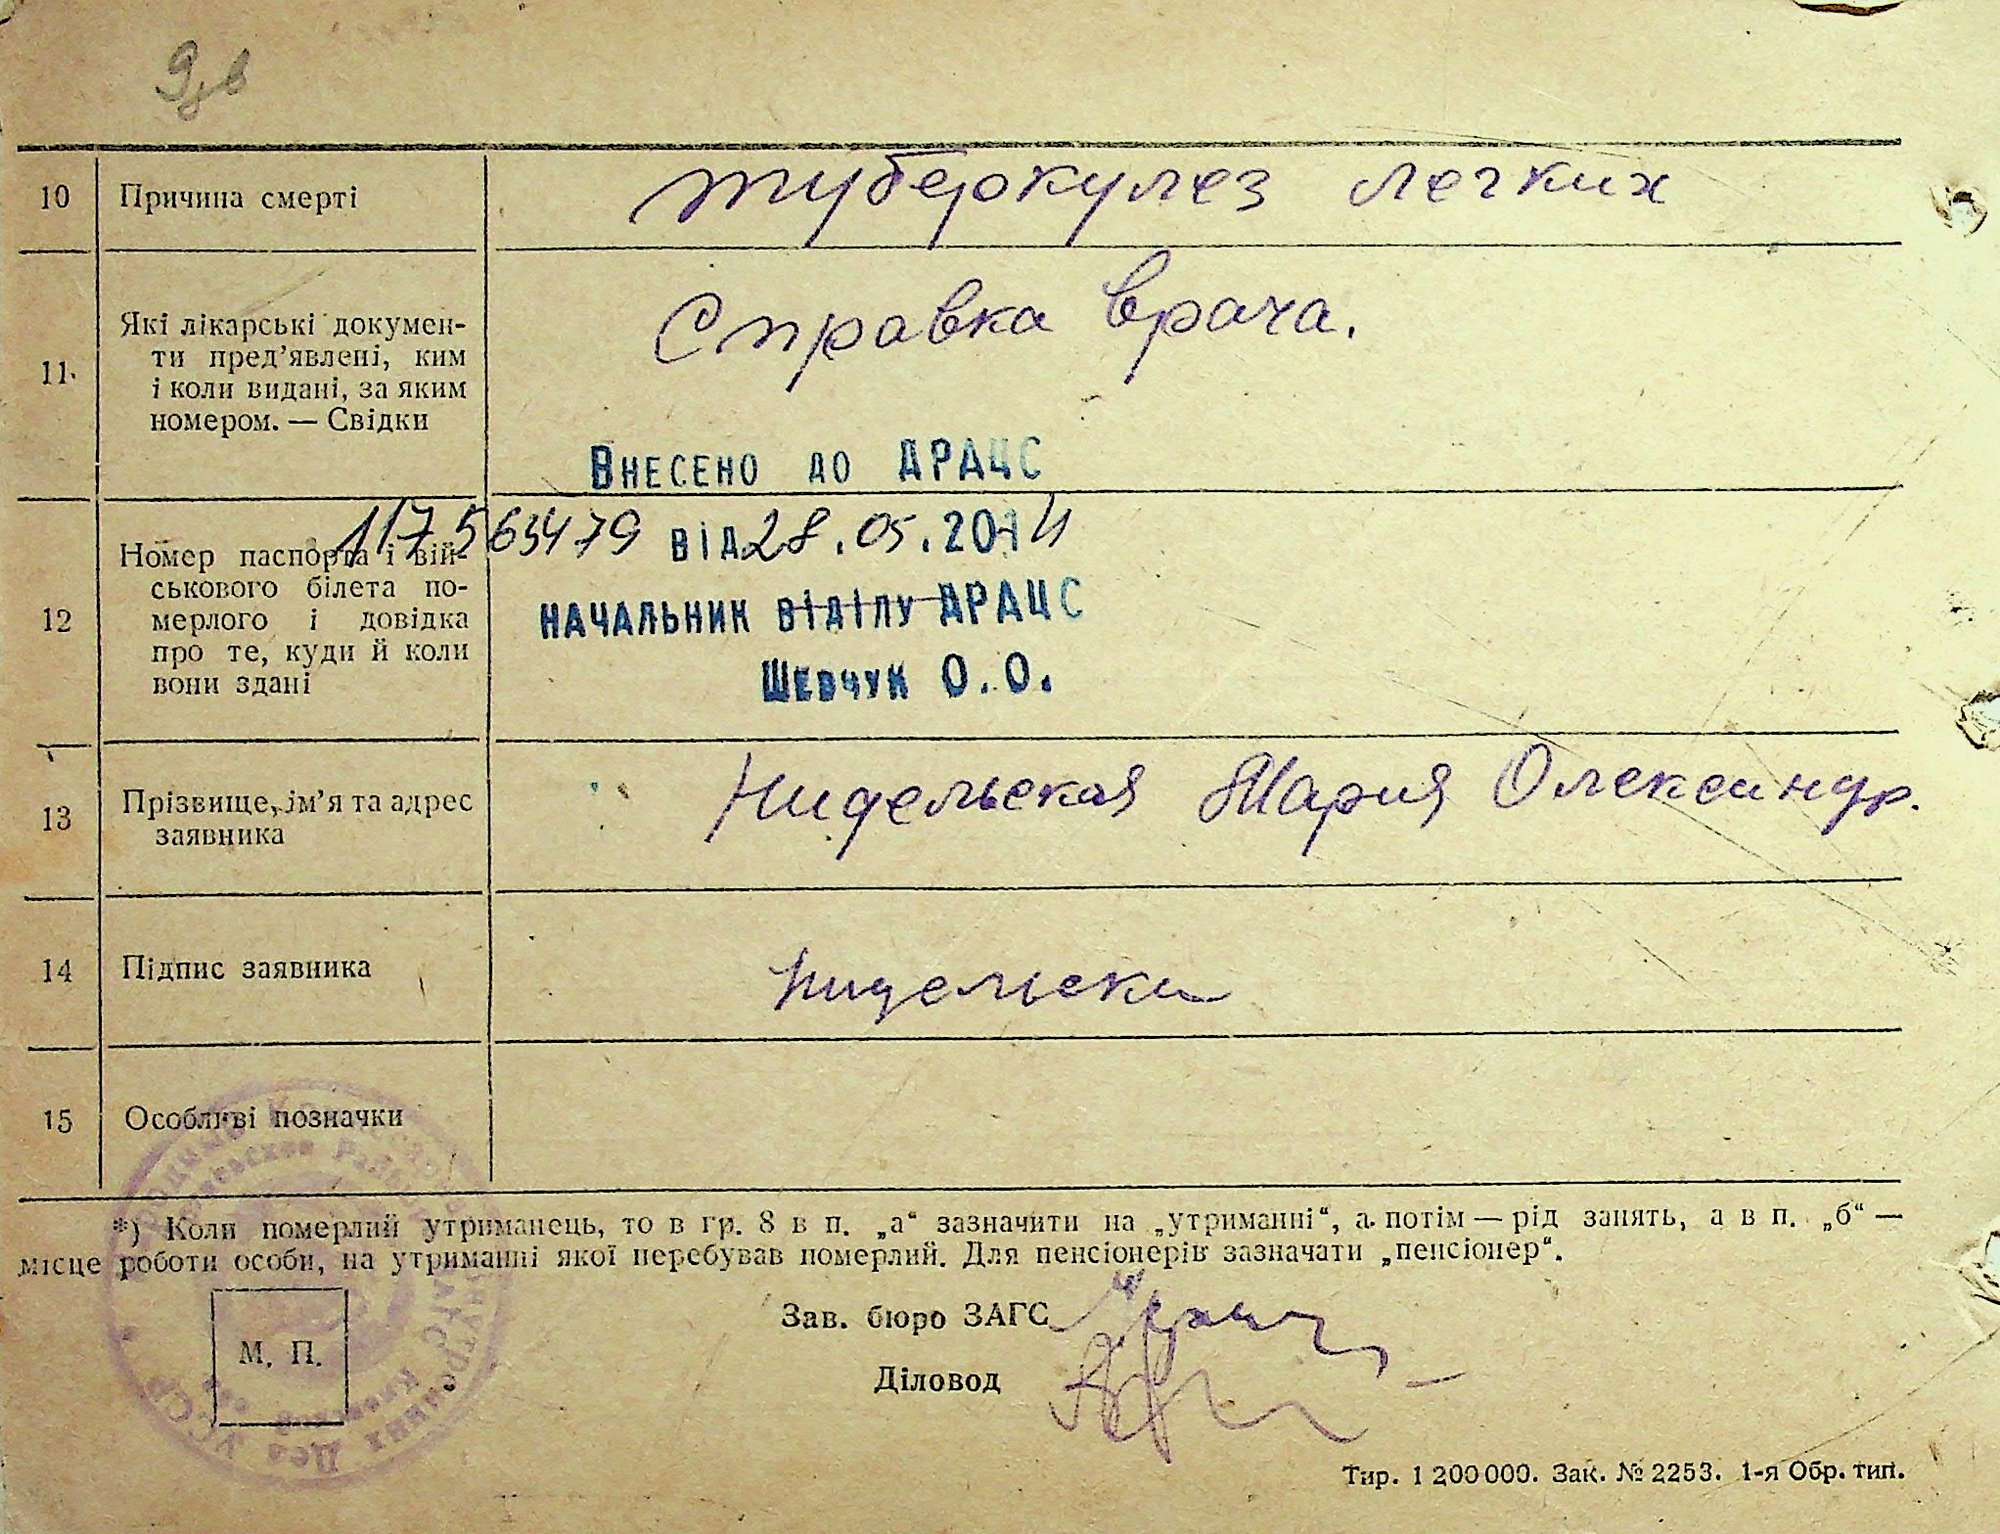 10 Причина смерті туберкулез легких
11. Які лікарські докумен-
ти пред’явлені, ким
і коли видані, за яким
номером. — Свідки
Справка врача.
Внесено до ДРАЦС
117563479 від 28.05.2014
начальник відділу ДРАЦС
Шевчук О.О.
12 Номер паспорта і вій-
ськового білета по-
мерлого і довідка
про те, куди й коли
вони здані
13 Прізвище, ім’я та адрес
заявника
Нидельская Мария Олександр.
14 Підпис заявника
15 Особливі позначки
*) Коли померлий утриманець, то в гр. 8 в п. „а“ зазначити на „утриманні“, а потім — рід занять, а в п. „б“ —
місце роботи особи, на утриманні якої перебував померлий. Для пенсіонерів зазначати „пенсіонер“.
М. П.
Зав. бюро ЗАГС
Діловод
Тир. 1 200 000. Зак. № 2253. 1-я Обр. тип.